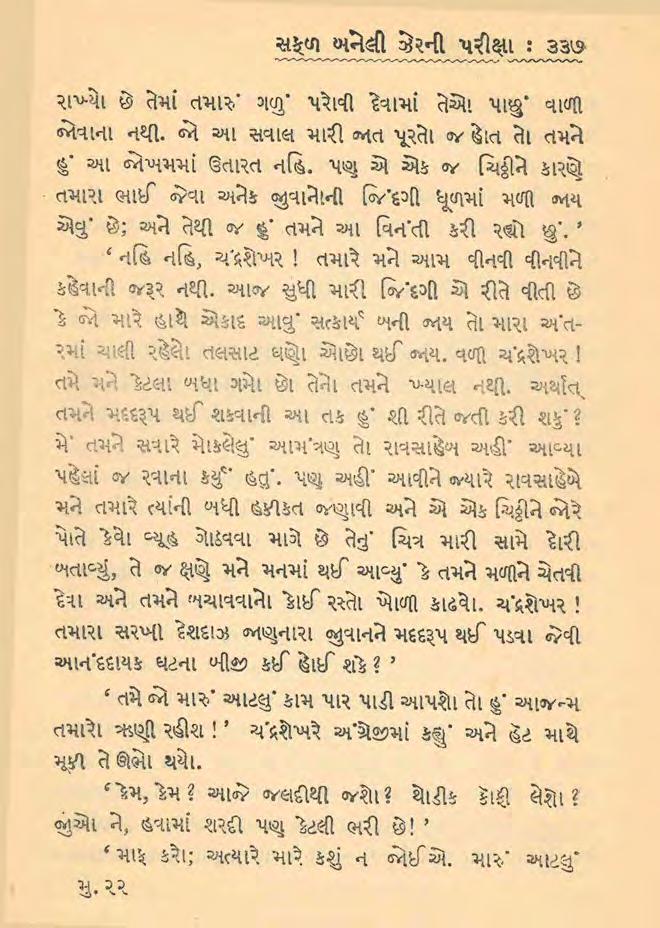 સફળ બનેલી ઝેરની પરીક્ષા : ૩૩૭
રાખ્યો છે તેમાં તમારું ગળું પરોવી દેવામાં તેઓ પાછું વાળી
જોવાના નથી. જો આ સવાલ મારી જાત પૂરતો જ હોત તો તમને
હું આ જોખમમાં ઉતારત નહિ. પણ એ એક જ ચિઠ્ઠીને કારણે
તમારા ભાઈ જેવા અનેક જુવાનોની જિંદગી ધૂળમાં મળી જાય
એવું છે; અને તેથી જ હું તમને આ વિનંતી કરી રહ્યો છું.’
‘નહિ નહિ, ચંદ્રશેખર ! તમારે મને આમ વીનવી વીનવીને
કહેવાની જરૂર નથી. આજ સુધી મારી જિંદગી એ રીતે વીતી છે
કે જો મારે હાથે એકાદ આવું સત્કાર્ય બની જાય તો મારા અંત-
રમાં ચાલી રહેલો તલસાટ ઘણો ઓછો થઈ જાય. વળી ચંદ્રશેખર !
તમે મને કેટલા બધા ગમો છો તેનો તમને ખ્યાલ નથી. અર્થાત્
તમને મદદરૂપ થઈ શકવાની આ તક હું શી રીતે જતી કરી શકું?
મેં તમને સવારે મોકલેલું આમંત્રણ તો રાવસાહેબ અહીં આવ્યા
પહેલાં જ રવાના કર્યું હતું. પણ અહીં આવીને જ્યારે રાવસાહેબે
મને તમારે ત્યાંની બધી હકીકત જણાવી અને એ એક ચિઠ્ઠીને જોરે
પોતે કેવો વ્યૂહ ગોઠવવા માગે છે તેનું ચિત્ર મારી સામે દોરી
બતાવ્યું, તે જ ક્ષણે મને મનમાં થઈ આવ્યું કે તમને મળીને ચેતવી
દેવા અને તમને બચાવવાનો કોઈ રસ્તો ખોળી કાઢવો. ચંદ્રશેખર !
તમારા સરખી દેશદાઝ જાણનારા જુવાનને મદદરૂપ થઈ પડવા જેવી
આનંદદાયક ઘટના બીજી કઈ હોઈ શકે? ’
‘ તમે જો મારું આટલું કામ પાર પાડી આપશો તો હું આજન્મ
તમારો ઋણી રહીશ !’ ચંદ્રશેખરે અંગ્રેજીમાં કહ્યું અને હૅટ માથે
મૂકી તે ઊભો થયો.
‘કેમ, કેમ? આજે જલદીથી જશો? થોડીક કૉફી લેશો?
જુઓ ને, હવામાં શરદી પણ કેટલી ભરી છે!’
‘માફ કરો; અત્યારે મારે કશું ન જોઈએ. મારું આટલું
મુ. ૨૨